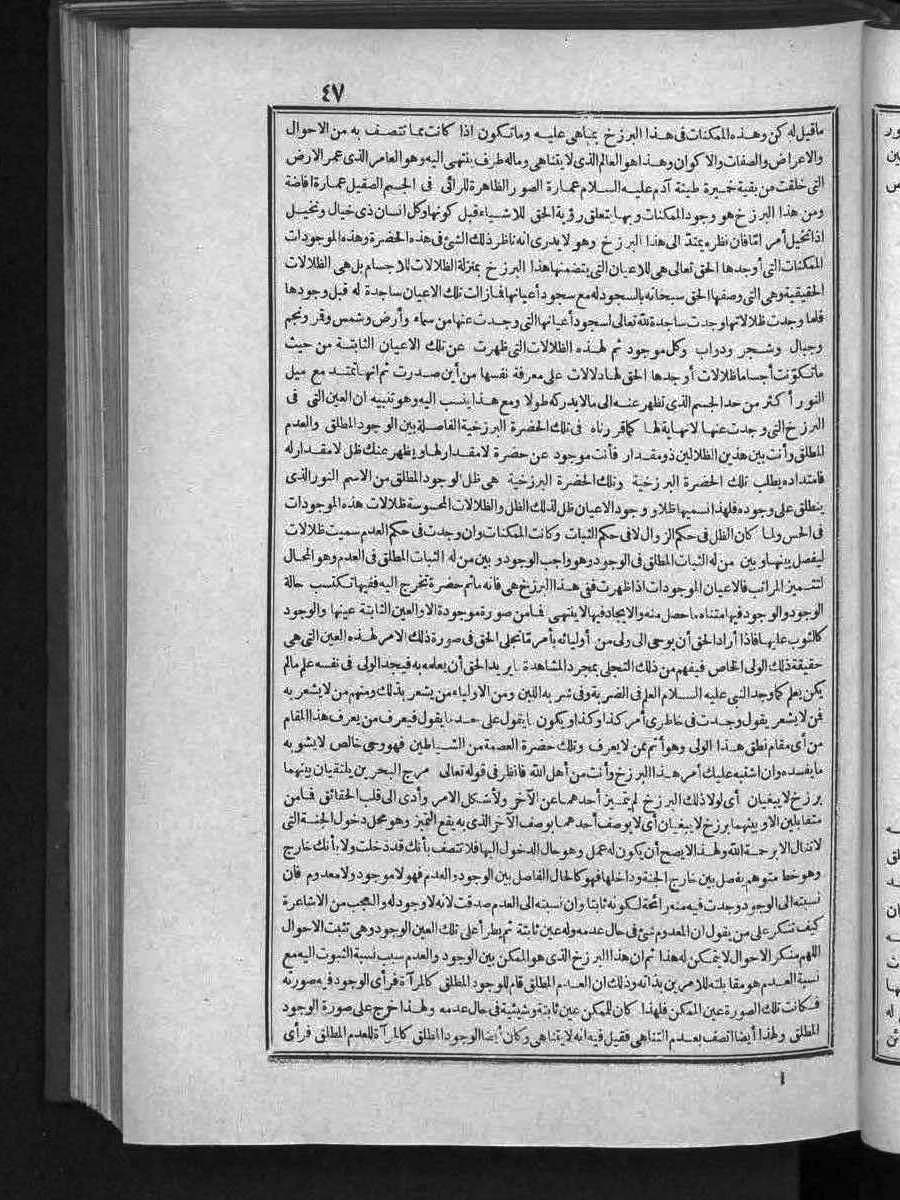 ٤٧
ما قيل له كن وهذه الممكنات فى هذا البرزخ بما هى عليه وما تكون اذا كانت مما تتصف به من الاحوال
والاعراض والصفات والاكوان وهذا هو العالم الذى لا يتناهى وماله طرف ينتهى اليه وهو العامر الذى عمر الارض
التى خلقت من بقية خميرة طينة آدم عليه السلام عمارة الصور الظاهرة للرائى فى الجسم الصقيل عمارة افاضة
ومن هذا البرزخ هو وجود الممكنات وبها يتعلق رؤية الحق للاشياء قبل كونها وكل انسان ذى خيال وتخيل
اذا تخيل أمرا مّا فان نظره يمتدّ الى هذا البرزخ وهو لا يدرى انه ناظر ذلك الشئ فى هذه الحضرة وهذه الموجودات
الممكنات التى أوجدها الحق تعالى هى للاعيان التى يتضمنها هذا البرزخ بمنزلة الظلالات للاجسام بل هى الظلالات
الحقيقية وهى التى وصفها الحق سبحانه بالسجود له مع سجود أعيانها فما زالت تلك الاعيان ساجدة له قبل وجودها
فلما وجدت ظلالاتها وجدت ساجدة لله تعالى لسجود أعيانها التى وجدت عنها من سماء وأرض وشمس وقمر ونجم
وجبال وشجر ودواب وكل موجود ثم لهذه الظلالات التى ظهرت عن تلك الاعيان الثابتة من حيث
ما تكوّنت أجساما ظلالات أوجدها الحق لها دلالات على معرفة نفسها من أين صدرت ثم انها تمتد مع ميل
النور أكثر من حد الجسم الذى تظهر عنه الى مالا يدركه طولا ومع هذا ينسب اليه وهو تنبيه ان العين التى فى
البرزخ التى وجدت عنها لا نهاية لها كما قررناه فى تلك الحضرة البرزخية الفاصلة بين الوجود المطلق والعدم
المطلق وأنت بين هذين الظلالين ذو مقدار فأنت موجود عن حضرة لا مقدار لها ويظهر عنك ظل لا مقدار له
فامتداده يطلب تلك الحضرة البرزخية وتلك الحضرة البرزخية هى ظل الوجود المطلق من الاسم النور الذى
ينطلق على وجوده فلهذا نسميها ظلا ووجود الاعيان ظل لذلك الظل والظلالات المحسوسة ظلالات هذه الموجودات
فى الحس ولما كان الظل فى حكم الزوال لا فى حكم الثبات وكانت الممكنات وان وجدت فى حكم العدم سميت ظلالات
ليفصل بينها وبين من له الثبات المطلق فى الوجود وهو واجب الوجود وبين من له الثبات المطلق فى العدم وهو المحال
لتتميز المراتب فالاعيان الموجودات اذا ظهرت ففى هذا البرزخ هى فانه ما ثم حضرة تخرج اليه ففيها تكتسب حالة
الوجود والوجود فيها متناه ما حصل منه والايجاد فيها لا ينتهى فما من صورة موجودة الا والعين الثابتة عينها والوجود
كالثوب عليها فاذا أراد الحق أن يوحى الى ولى من أوليائه بأمر مّا تجلى الحق فى صورة ذلك الامر لهذه العين التى هى
حقيقة ذلك الولى الخاص فيفهم من ذلك التجلى بمجرد المشاهدة ما يريد الحق أن يعلمه به فيجد الولى فى نفسه علم مالم
يكن يعلم كما وجد النبى عليه السلام العلم فى الضربة وفى شربه اللبن ومن الاولياء من يشعر بذلك ومنهم من لا يشعر به
فمن لا يشعر يقول وجدت فى خاطرى أمر كذا وكذا ويكون ما يقول على حد ما يقول فيعرف من يعرف هذا المقام
من أى مقام نطق هذا الولى وهو أتم ممن لا يعرف وتلك حضرة العصمة من الشياطين فهو وحى خالص لا يشوبه
ما يفسده وان اشتبه عليك أمر هذا البرزخ وأنت من أهل الله فانظر فى قوله تعالى مرج البحرين يلتقيان بينهما
برزخ لا يبغيان أى لولا ذلك البرزخ لم يتميز أحدهما عن الآخر ولأشكل الامر وأدى الى قلب الحقائق فما من
متقابلين الا وبينهما برزخ لا يبغيان أى لا يوصف أحدهما بوصف الآخر الذى به يقع التميز وهو محل دخول الجنة التى
لا تنال الا برحمة الله ولهذا لا يصح أن يكون له عمل وهو حال الدخول اليها فلا تتصف بأنك قد دخلت ولا بأنك خارج
وهو خط متوهم يفصل بين خارج الجنة وداخلها فهو كالحال الفاصل بين الوجود والعدم فهو لا موجود ولا معدوم فان
نسبته الى الوجود وجدت فيه منه رائحة لكونه ثابتا وان نسبته الى العدم صدقت لانه لا وجود له والعجب من الاشاعرة
كيف تنكر على من يقول ان المعدوم شئ فى حال عدمه وله عين ثابتة ثم يطرأ على تلك العين الوجود وهى تثبت الاحوال
اللهم منكر الاحوال لا يتمكن له هذا ثم ان هذا البرزخ الذى هو الممكن بين الوجود والعدم سبب نسبة الثبوت اليه مع
نسبة العدم هو مقابلته للامرين بذاته وذلك ان العدم المطلق قام للوجود المطلق كالمرآة فرأى الوجود فيه صورته
فكانت تلك الصورة عين الممكن فلهذا كان للممكن عين ثابتة وشيئية فى حال عدمه ولهذا خرج على صورة الوجود
المطلق ولهذا أيضا اتصف بعدم التناهى فقيل فيه انه لا يتناهى وكان أيضا الوجود المطلق كالمرآة للعدم المطلق فرأى